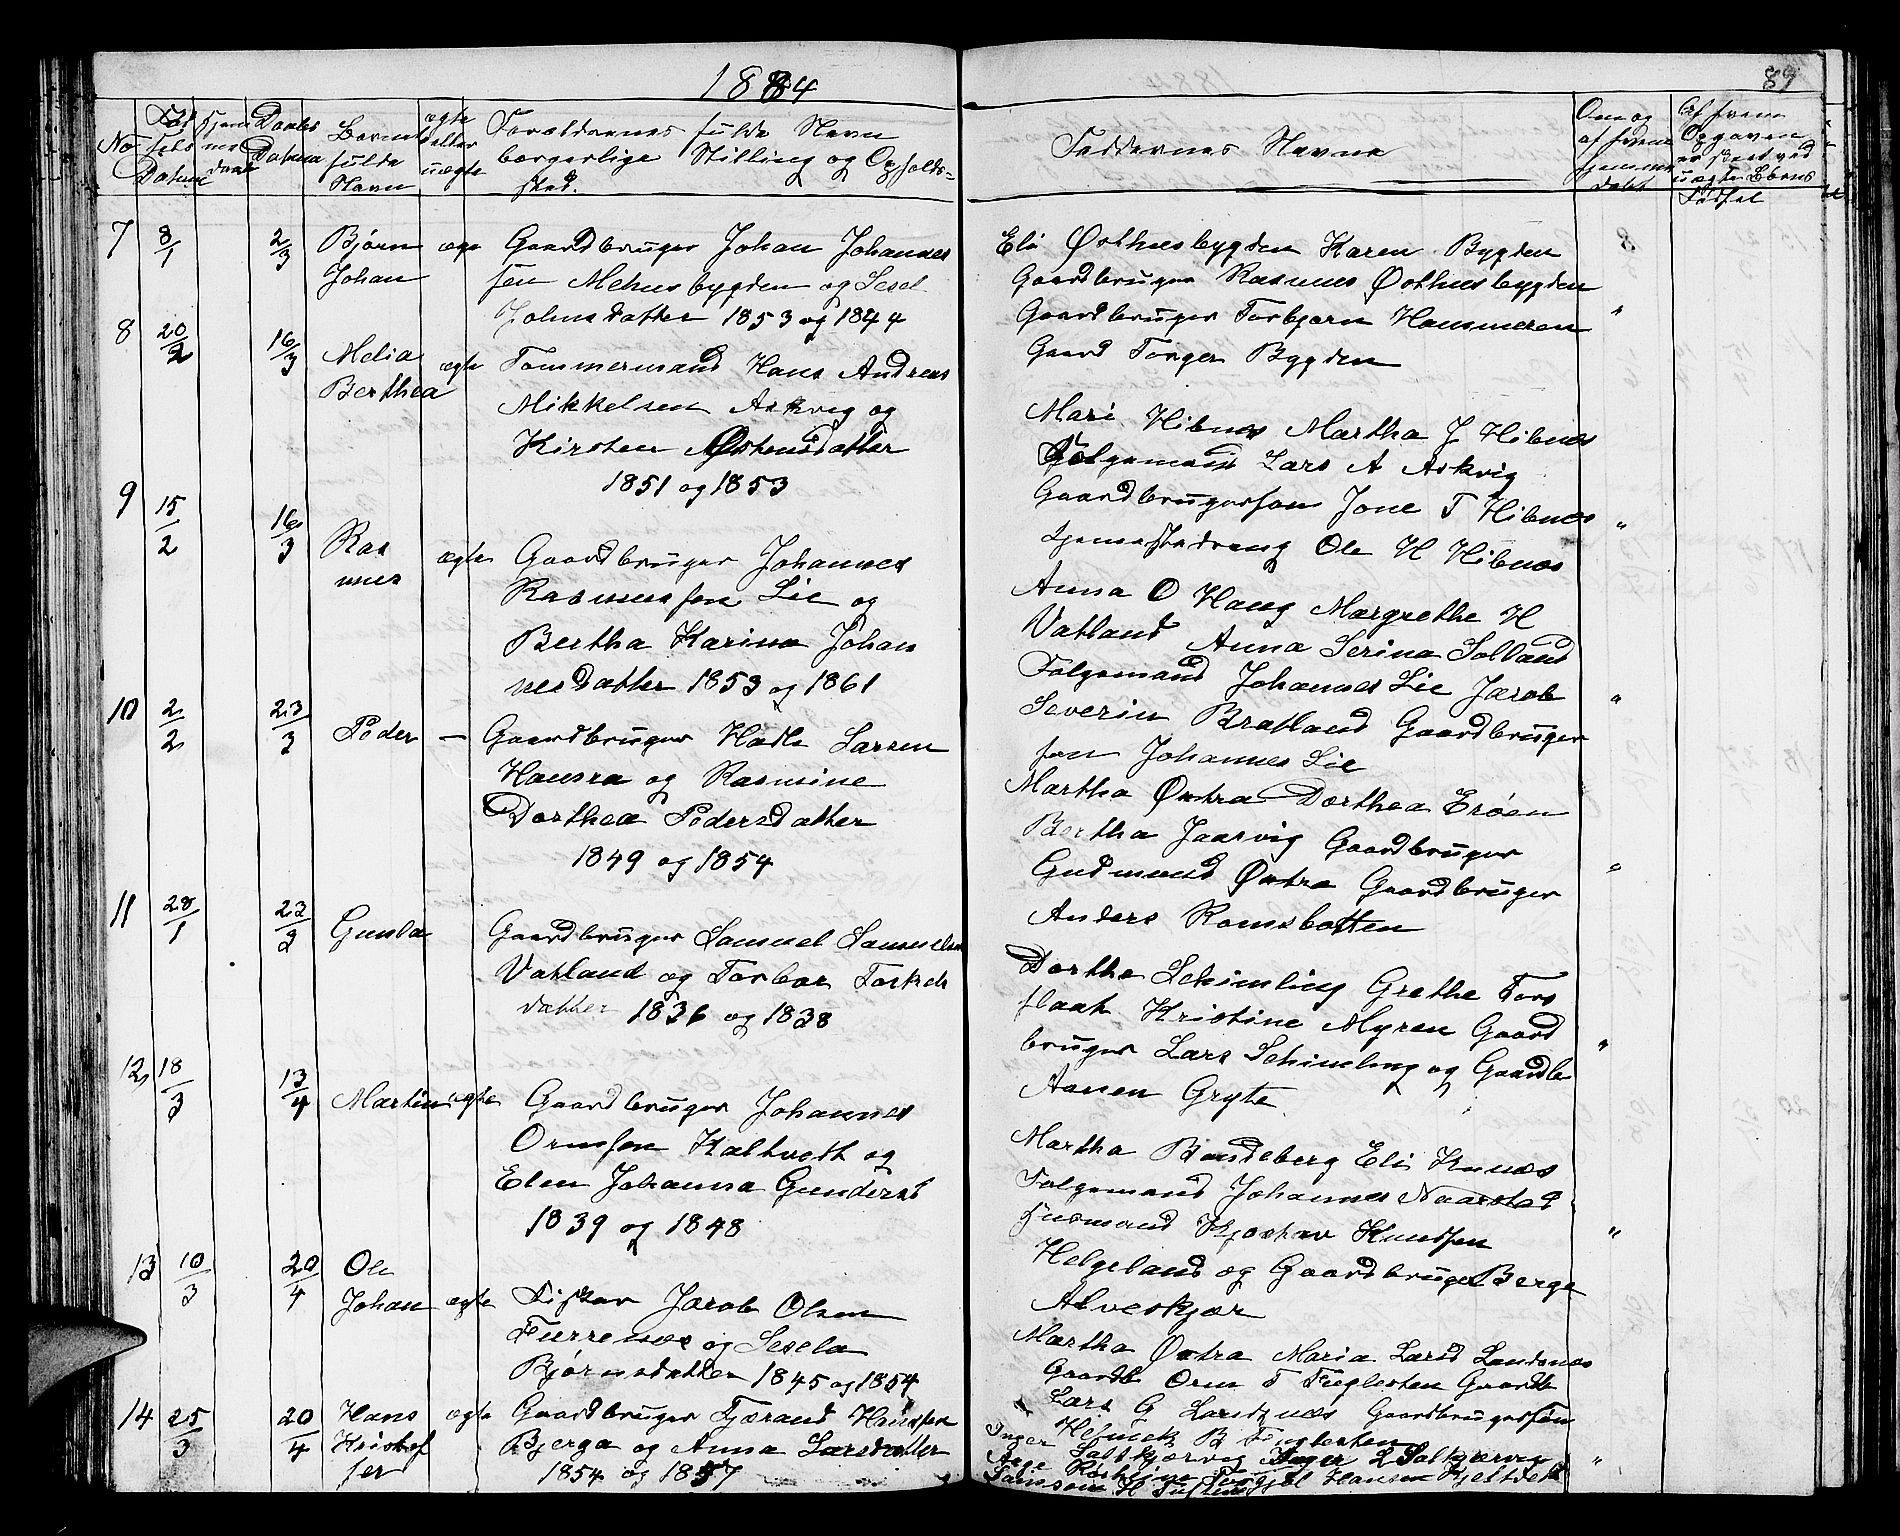 1884
89
No
Fødsels Datum
Hjemmedaab
Daabs Datum
Barnets fulde Navn
ægte eller uægte
Forældrenes fulde Navn
borgerlige Stilling og Opholds-
sted.
Faddernes Navne
Om og af hvem hjemmedøbt
Af hvem Opgaven er skeet ved uægte Børns Fødsel
7 8/1 2/3 Bjørn ægte Gaardbruger Johan Johannes
Johan sen Mehusbygden og Sesel
Johnsdatter 1853 og 1844
Eli Østhusbygden Karen Bygden
Gaardbruger Rasmus Østhusbygden
Gaardbruger Torbjørn Hammeren "
Gaard Torger Bygden
8 20/2 16/3 Melia ægte Tømmermand Hans Andreas
Berthea Mikkelsen Askvig og
Kirsten Østensdatter
1851 og 1853
Mari Hibnes Martha J Hibnes
Følgemand Lars A Askvig
Gaardbrugersøn Jone T Hibnes "
Tjenestedreng Ole H Hibnes
9 15/2 16/3 Ras ægte Gaardbruger Johannes
mus Rasmussen Lie og
Bertha Karina Johan
nesdatter 1853 og 1861
Anna O Haug Margrethe H
Vatland Anna Serina Solland
Følgemand Johannes Lie Jacob "
Severin Bratland Gaardbruger
søn Johannes Lie
10 2/2 23/3 Peder – Gaardbruger Hadle Larsen
Hausra og Rasmine
Dorthea Pedersdatter
1849 og 1854
Martha Østra Dorthea Erøen
Bertha Jaarvig Gaardbruger
Gudmund Østra Gaardbruger "
Anders Ramsbotten
11 28/1 23/3 Gunla Gaardbruger Samuel Samuelsen
Vatland og Torbor Torkels
datter 1836 og 1838
Dorthe Schimling Grethe Tors
flaat Kristine Myren Gaard
bruger Lars Schimling og Gaardb "
Aanen Gryte
12 18/3 13/4 Martin ægte Gaardbruger Johannes
Ormsen Kaltveth og
Elen Johanna Gundersd
1839 og 1848
Martha Bandeberg Eli Knæs
Følgemand Johannes Naarstad
Husmand Kjøstav Knudsen "
Helgeland og Gaardbruger Berge
Alveskjær
13 10/3 20/4 Ole
Johan ægte Fisker Jacob Olsen
Furrenæs og Sesela
Bjørnsdatter 1845 og 1854
Martha Østra Maria Larsd Landsnæs
Gaardb Orm T Fuglesten Gaardb
Lars G Landsnæs Gaardbrugersøn
Helmick B Fuglesten
14 25/3 20/4 Hans ægte Gaardbruger Tjærand Hansen
Kristof Bjerga og Anna Larsdatter
fer 1854 og 1857
Inger Saltkjærvig Inger L Saltkjærvig "
Hansen Kjeltvet